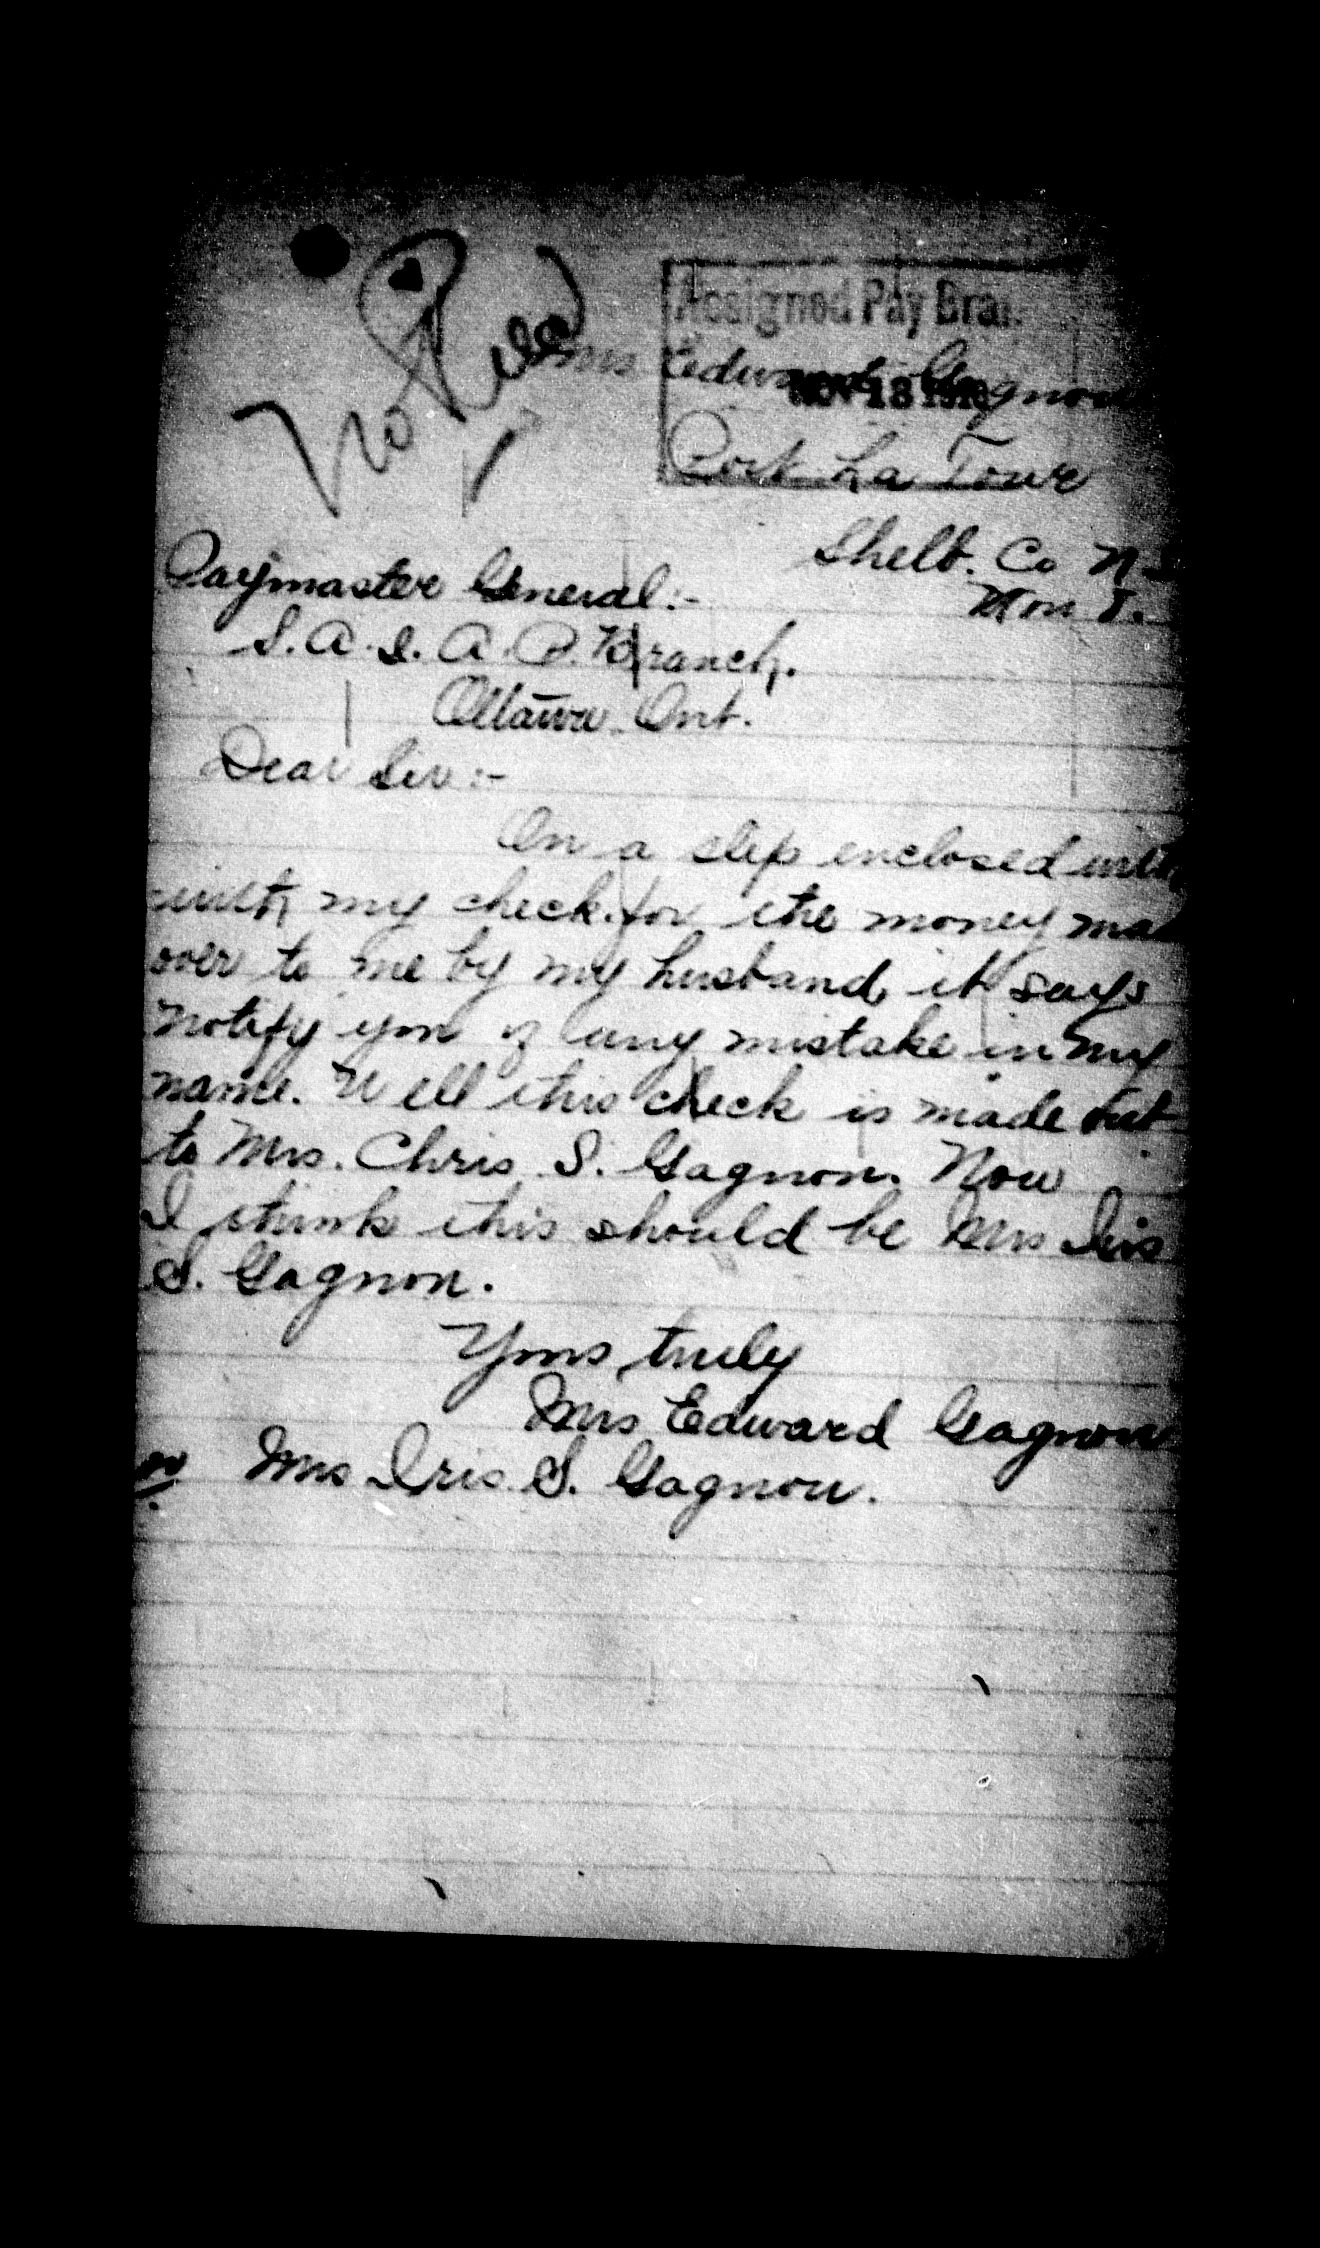 No Reco
Assigned Pay Bran
Mrs Edward Gagnon
NOV 18 1918
Port La Tour
Shelb. Co N.S
Paymaster General:-
S. A. & A. P. Branch.
Ottawa Ont.
Dear Sir:-
On a slip enclosed with
with my check for the money ma
over to me by my husband, it says
notify you of any mistake in my
name. Well this check is made out
to Mrs. Chris S. Gagnon. Now
I think this should be Mrs Iris
S. Gagnon.
Yours truly
Mrs Edward Gagnon
or Mrs Iris S. Gagnon.